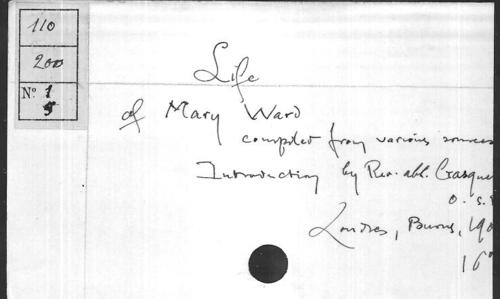 110
200
Nº 1
5
Life
of Mary Ward
compiled from various sources
Introduction by Rev. abb. Gasque
O. S.
Londres, Burns, 190
16